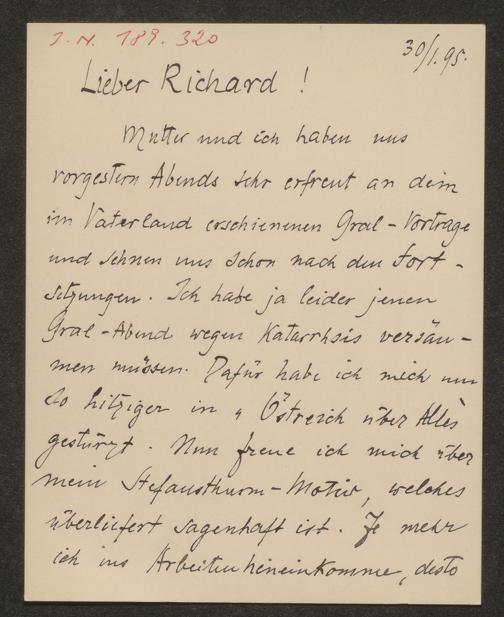 I. N. 189.320
30/I. 95.
Lieber Richard !
Mutter und ich haben uns
vorgestern Abends sehr erfreut an dem
im Vaterland erschienenen Gral-Vortrage
und sehnen uns schon nach den Fort-
setzungen. Ich habe ja leider jenen
Gral-Abend wegen Katarrhsis versäu-
men müssen. Dafür habe ich mich nun
so hitziger in „Östreich über Alles"
gestürzt. Nun freue ich mich über
mein Stefansthurm-Motiv, welches
überliefert sagenhaft ist. Je mehr
ich ins Arbeiten hineinkomme, desto